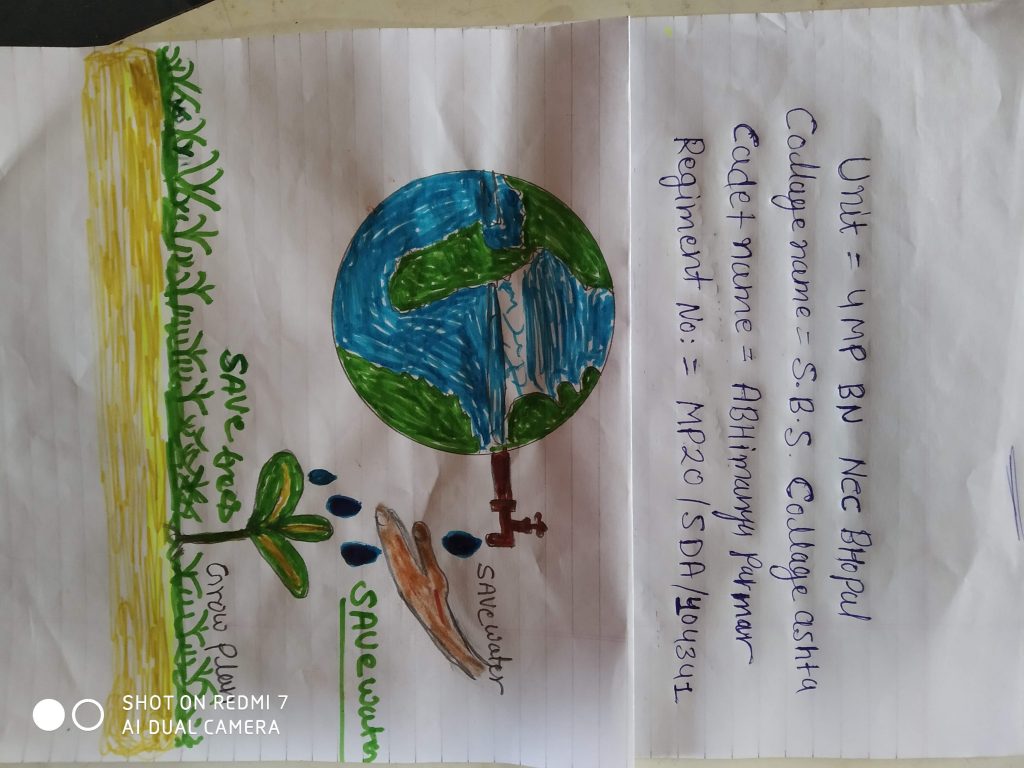 Unit = 4MP BN Ncc BHopal
Collage name = S.B.S. Collage ashta
Cadet name = ABHimanyu Parmar
Regiment No: = MP20/SDA/404341
SAVE water
SAVE water
SAVE trees
Grow Plan
SHOT ON REDMI 7
AI DUAL CAMERA